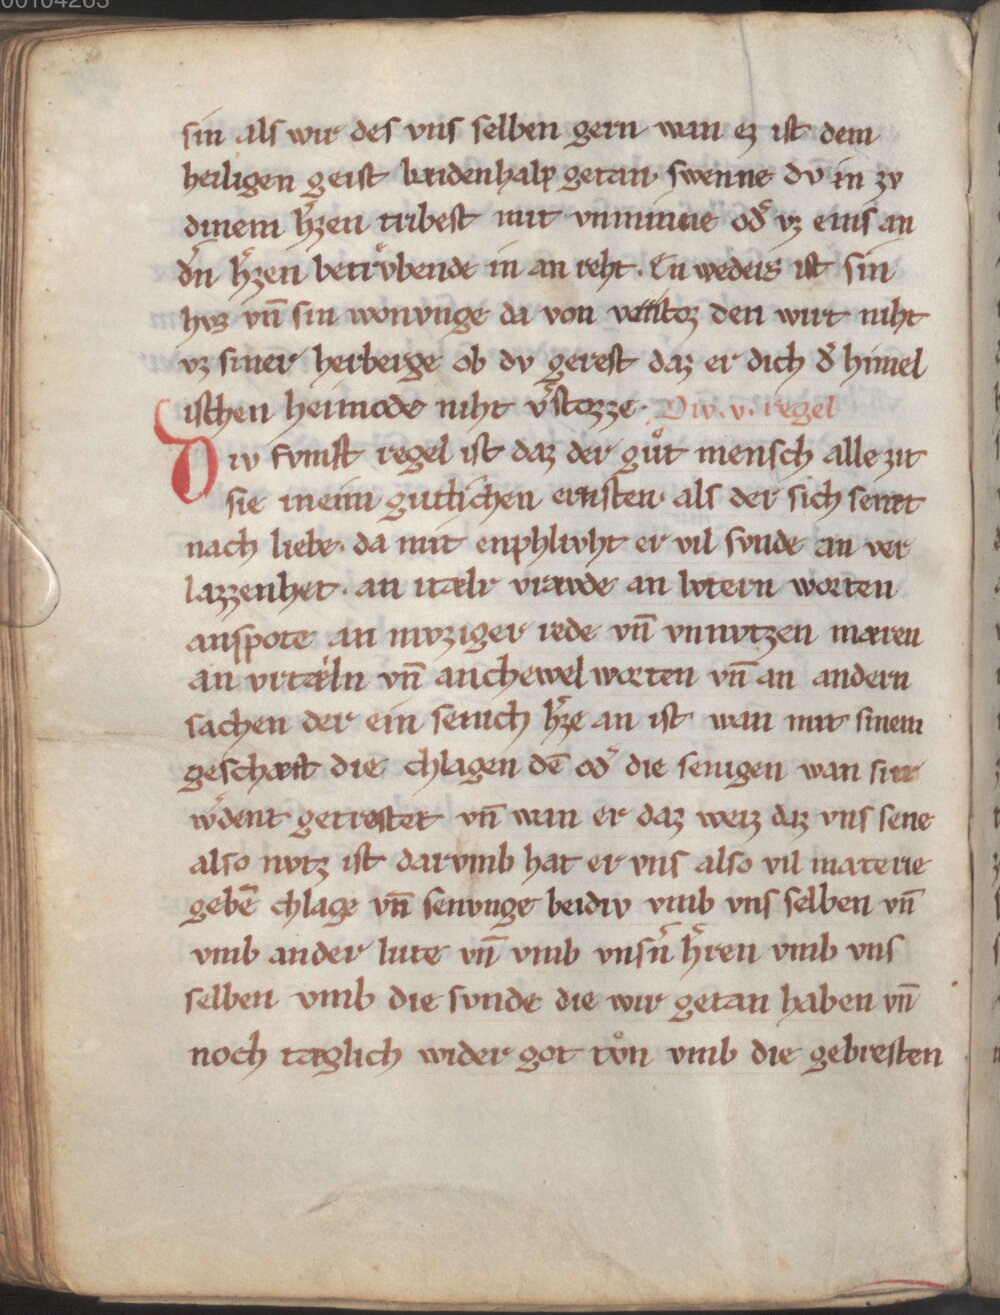 00104263
sin als wir des vns selben gern wan ez ist dem
heiligen geist beidenhalp getan· swenne dv in zv
dinem h̾zen tribest mit vnminne od̾ vz eins an
d̾n h̾zen betrvͦbende in an reht. En weders ist sin
hvs vn̄ sin wonvnge da von verstoz den wirt niht
vz siner herberge ob dv gerest daz er dich d̾ himel
ischen heimode niht v̾stozze· Div. v. regel
Div fvmft regel ist daz der gvͦt mensch alle zit
sie in eim gutlichen ernsten· als der sich sent
nach liebe· da mit enphlivht er vil svnde an ver
lazzenhet· an itæler vrawde an lotern worten
an spote an mvziger rede vn̄ vnnvtzen mæren
an vrtæiln vn̄ an chewel worten vn̄ an andern
sachen der ein senich h̾ze an ist wan mit sinem
geschæft die chlagen dē od̾ die senigen wan sie
w̾dent getrostet vn̄ wan er daz weiz daz vns sene
also nvtz ist darvmb hat er vns also vil materie
gebē chlage vn̄ senvnge beidiv vmb vns selben vn̄
vmb ander lute vn̄ vmb vnsn̾ h̾ren vmb vns
selben vmb die svnde die wir getan haben vn̄
noch tæglich wider got tvͦn vmb die gebresten